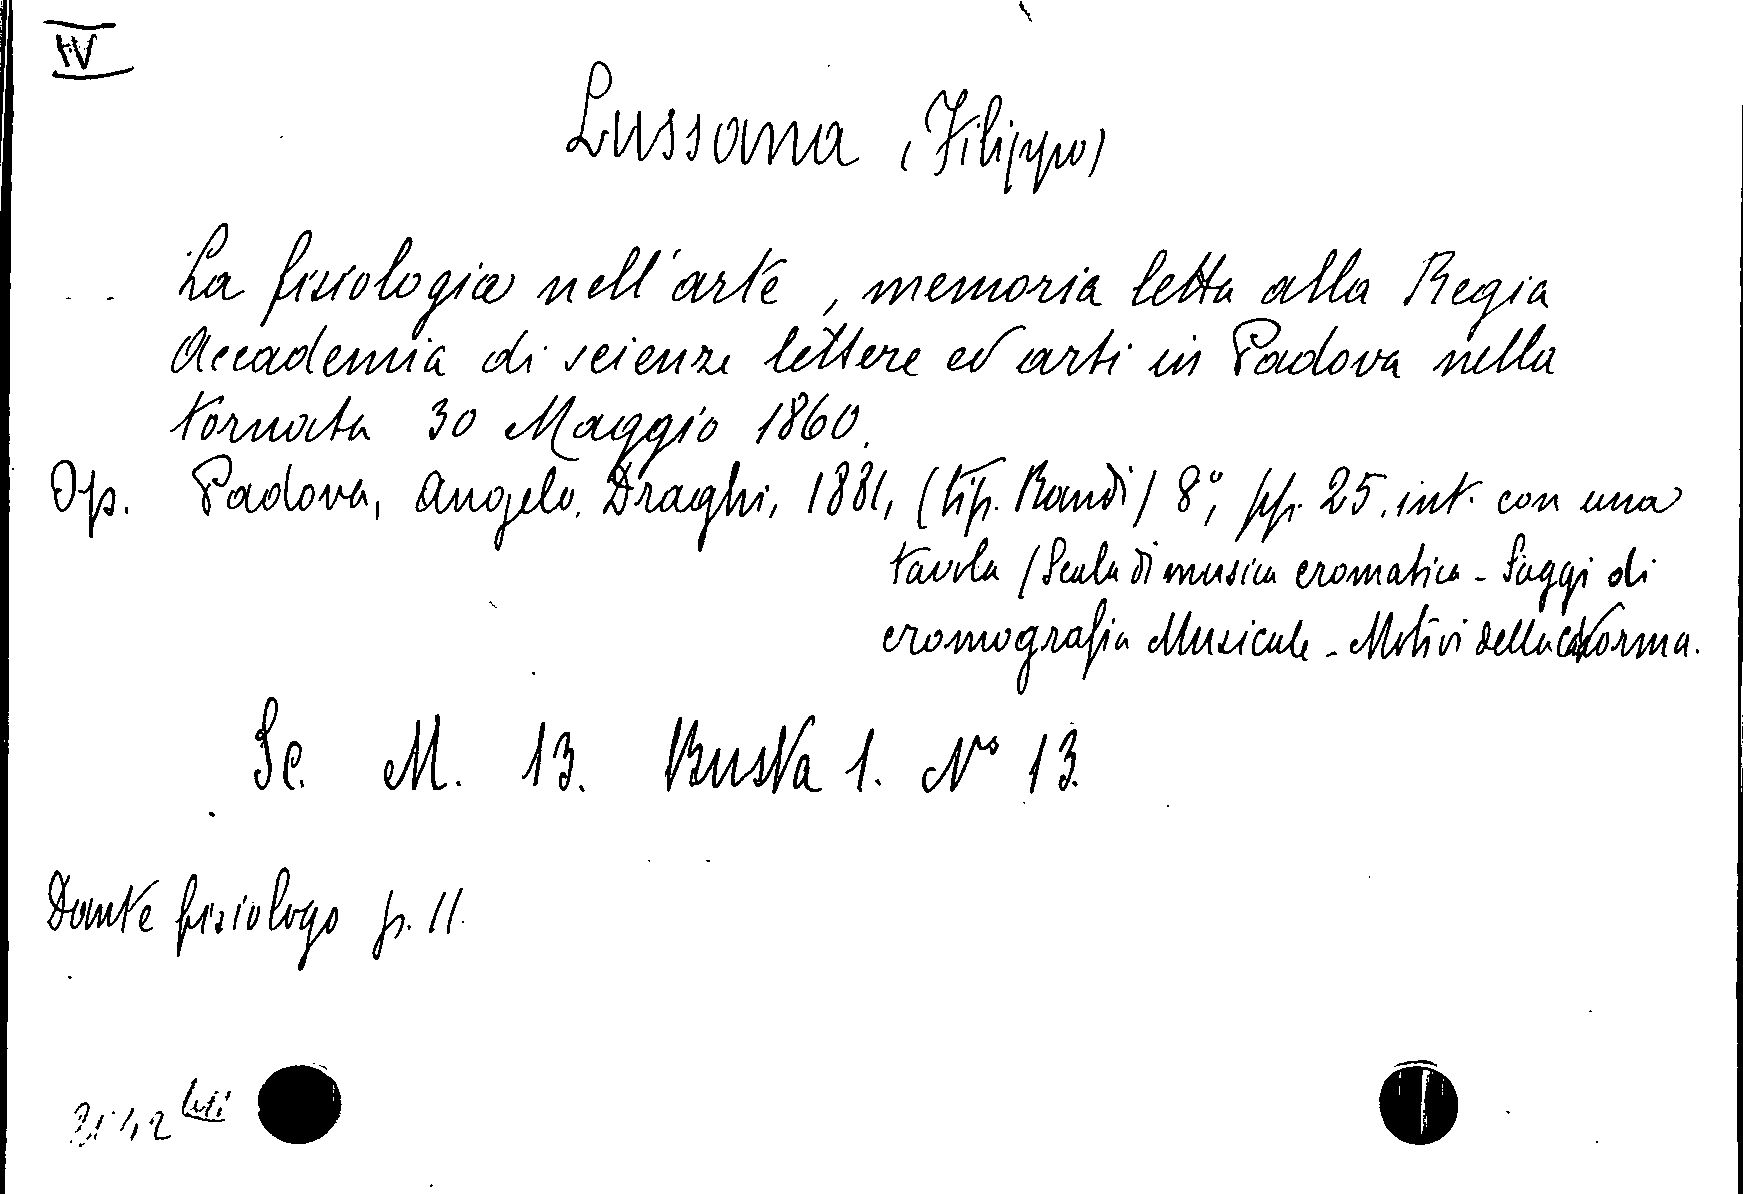 IV
Lussana (Filippo)
La fisiologia nell'arte, memoria letta alla Regia
Accademia di scienze lettere ed arti in Padova nella
tornata 30 Maggio 1860.
Op. Padova, Angelo Draghi, 1881, (tip. Randi) 8°, pp. 25. int. con una
tavola (Scala di musica cromatica - Saggi di
cromografia Musicale - Motivi della Norma.
Sc. M. 13. Busta 1. N° 13.
Dante fisiologo p. 11.
bis